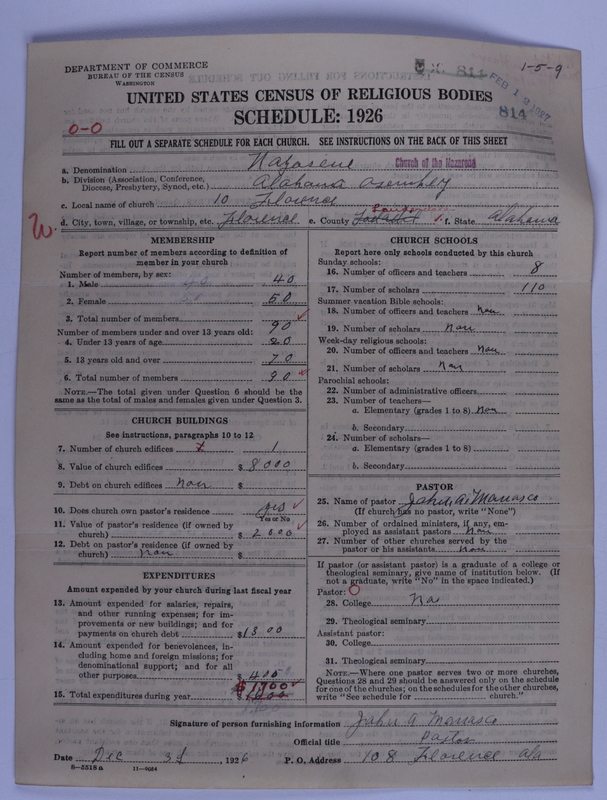 DEPARTMENT OF COMMERCE
BUREAU OF THE CENSUS
WASHINGTON
1-5-9
814
FEB 1 1927
814
UNITED STATES CENSUS OF RELIGIOUS BODIES
SCHEDULE: 1926
0-0
FILL OUT A SEPARATE SCHEDULE FOR EACH CHURCH. SEE INSTRUCTIONS ON THE BACK OF THIS SHEET
a. Denomination Nazarene Church of the Nazarene
b. Division (Association, Conference, Diocese, Presbytery, Synod, etc.) Alabama
c. Local name of church 10 Florence
d. City, town, village, or township, etc. Florence e. County f. State Alabama
MEMBERSHIP
Report number of members according to definition of member in your church
Number of members, by sex:
1. Male 40
2. Female 50
3. Total number of members 90
Number of members under and over 13 years old:
4. Under 13 years of age 20
5. 13 years old and over 70
6. Total number of members 90
NOTE.—The total given under Question 6 should be the same as the total of males and females given under Question 3.
CHURCH BUILDINGS
See instructions, paragraphs 10 to 12
7. Number of church edifices 1
8. Value of church edifices $ 8000
9. Debt on church edifices non $
10. Does church own pastor's residence yes
Yes or No
11. Value of pastor's residence (if owned by church) $ 2500
12. Debt on pastor's residence (if owned by church) non $
EXPENDITURES
Amount expended by your church during last fiscal year
13. Amount expended for salaries, repairs, and other running expenses; for improvements or new buildings; and for payments on church debt $1300
14. Amount expended for benevolences, including home and foreign missions; for denominational support; and for all other purposes $ 400
15. Total expenditures during year $1700
CHURCH SCHOOLS
Report here only schools conducted by this church
Sunday schools:
16. Number of officers and teachers 8
17. Number of scholars 110
Summer vacation Bible schools:
18. Number of officers and teachers non
19. Number of scholars non
Week-day religious schools:
20. Number of officers and teachers non
21. Number of scholars non
Parochial schools:
22. Number of administrative officers
23. Number of teachers—
a. Elementary (grades 1 to 8) non
b. Secondary
24. Number of scholars—
a. Elementary (grades 1 to 8)
b. Secondary
PASTOR
25. Name of pastor John A. Manasco
(If church has no pastor, write "None")
26. Number of ordained ministers, if any, employed as assistant pastors non
27. Number of other churches served by the pastor or his assistants non
If pastor (or assistant pastor) is a graduate of a college or theological seminary, give name of institution below. (If not a graduate, write "No" in the space indicated.)
Pastor: O
28. College no
29. Theological seminary
Assistant pastor:
30. College
31. Theological seminary
NOTE.—Where one pastor serves two or more churches, Questions 28 and 29 should be answered only on the schedule for one of the churches; on the schedules for the other churches, write "See schedule for church."
Signature of person furnishing information John A Manasco
Official title Pastor
Date Dec 31, 1926 P. O. Address 108 Florence ala
8-5518a 11-9684